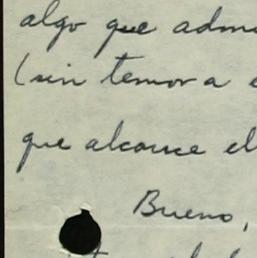 algo que
(sin temor a
que alcance el
Bueno,